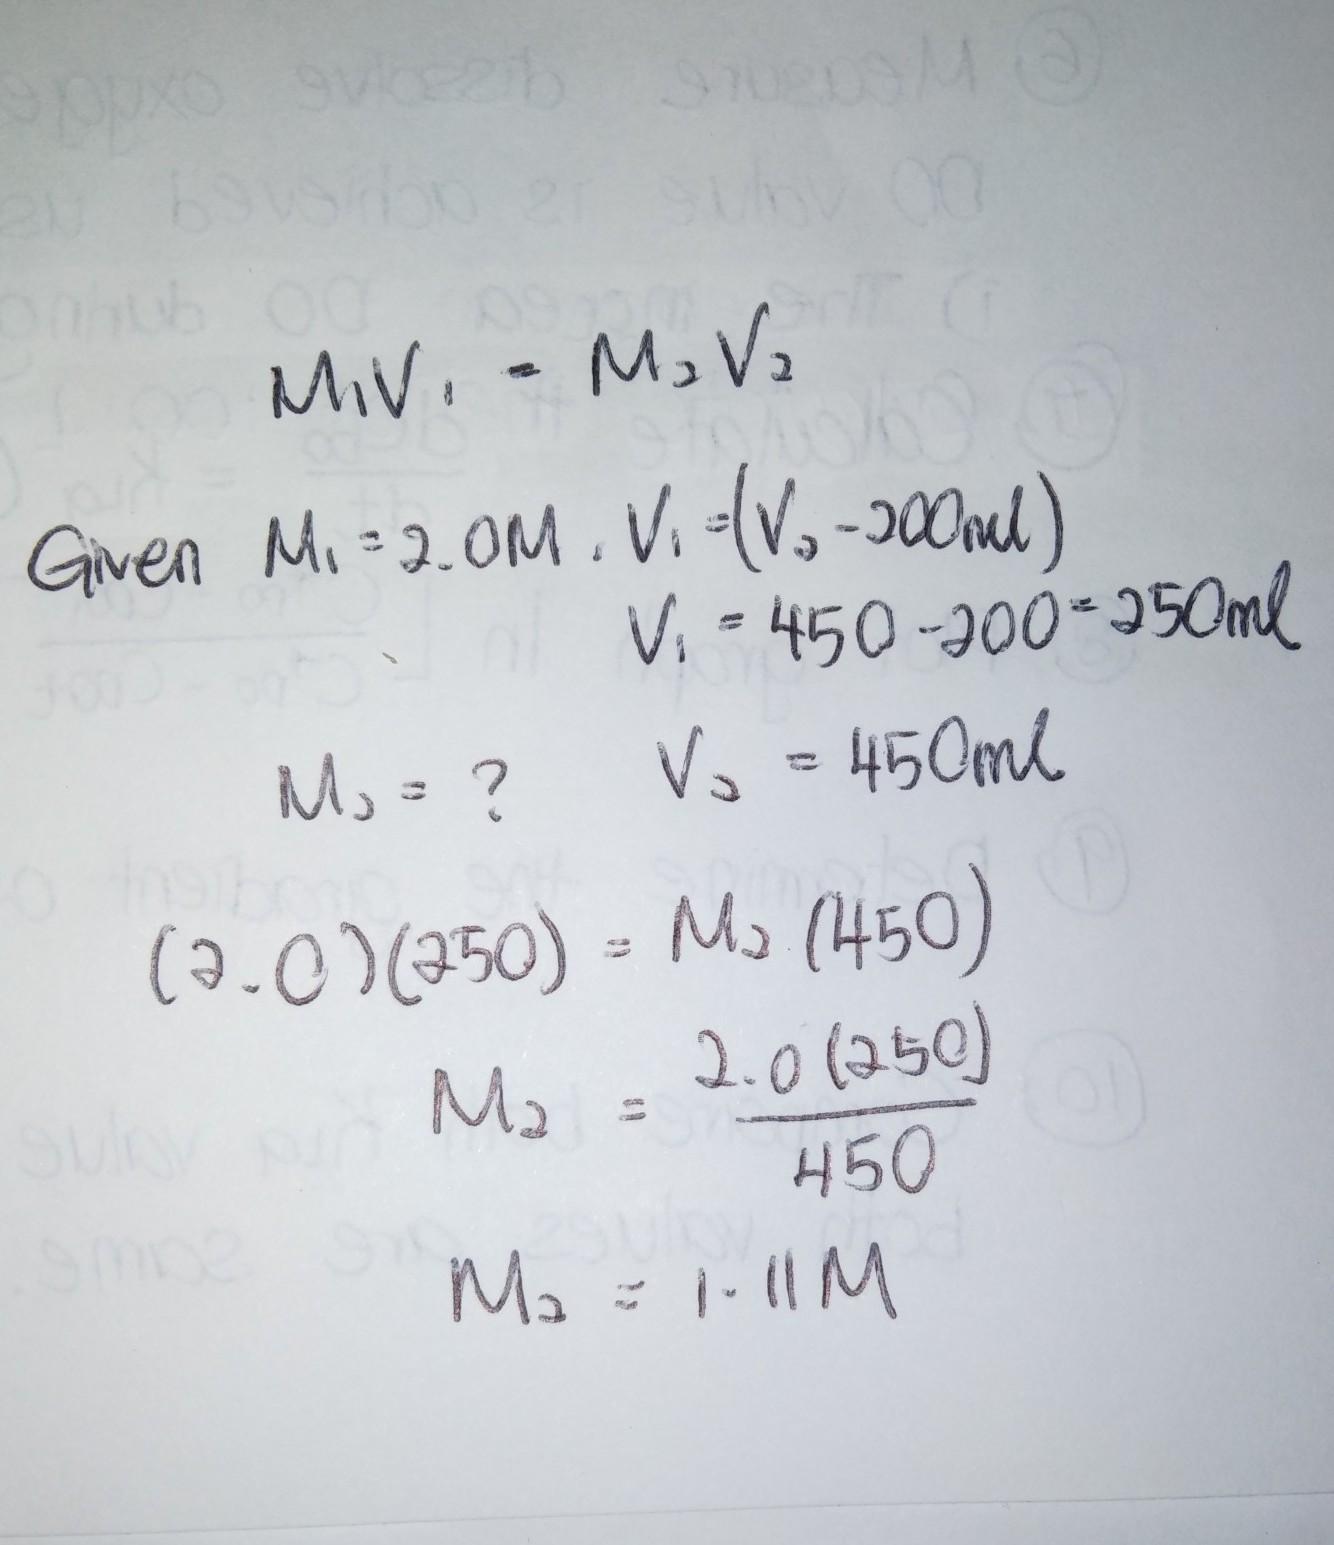 M₁V₁ = M₂V₂
Given M₁ = 2.0M, V₁ = (V₂ - 200ml)
V₁ = 450 - 200 = 250ml
M₂ = ? V₂ = 450ml
(2.0)(250) = M₂ (450)
M₂ = 2.0(250)
450
M₂ = 1.11M